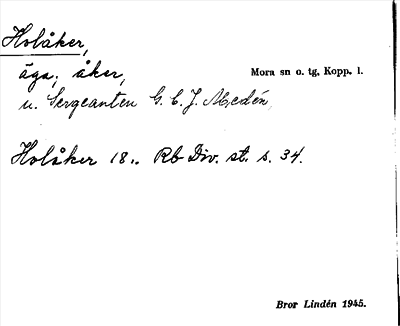 Holåker,
äga, åker,
Mora sn o. tg, Kopp. l.
u. Sergeanten G. C. J. Meden
Holåker 18.. Rb Div. st. s. 34.
Bror Lindén 1945.